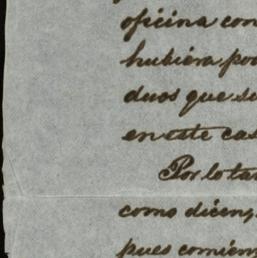 oficina con
hubiera po
duos que se
en este cas
Por lo tan
como dicen,
pues comien